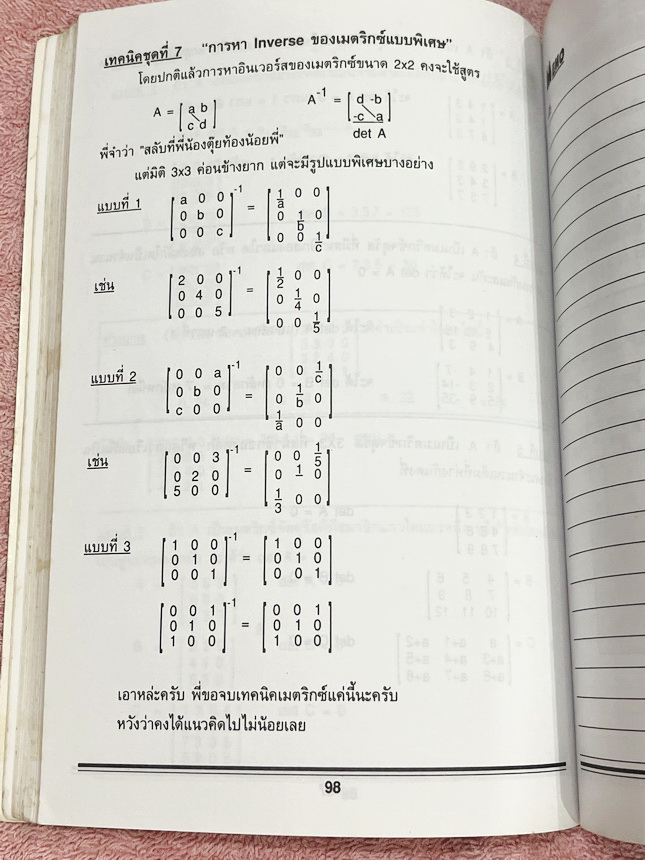 เทคนิคชุดที่ 7 "การหา Inverse ของเมตริกซ์แบบพิเศษ"
โดยปกติแล้วการหาอินเวอร์สของเมตริกซ์ขนาด 2x2 คงจะใช้สูตร
A = [ a b A⁻¹ = [ d -b
c d ] -c a ]
det A
พี่จำว่า "สลับที่พี่น้องตุ๊ยท้องน้อยพี่"
แต่มิติ 3x3 ค่อนข้างยาก แต่จะมีรูปแบบพิเศษบางอย่าง
แบบที่ 1
[ a 0 0 ]⁻¹ [ 1/a 0 0 ]
[ 0 b 0 ] = [ 0 1/b 0 ]
[ 0 0 c ] [ 0 0 1/c ]
เช่น
[ 2 0 0 ]⁻¹ [ 1/2 0 0 ]
[ 0 4 0 ] = [ 0 1/4 0 ]
[ 0 0 5 ] [ 0 0 1/5 ]
แบบที่ 2
[ 0 0 a ]⁻¹ [ 0 0 1/c ]
[ 0 b 0 ] = [ 0 1/b 0 ]
[ c 0 0 ] [ 1/a 0 0 ]
เช่น
[ 0 0 3 ]⁻¹ [ 0 0 1/5 ]
[ 0 2 0 ] = [ 0 1 0 ]
[ 5 0 0 ] [ 1/3 0 0 ]
แบบที่ 3
[ 1 0 0 ]⁻¹ [ 1 0 0 ]
[ 0 1 0 ] = [ 0 1 0 ]
[ 0 0 1 ] [ 0 0 1 ]
[ 0 0 1 ]⁻¹ [ 0 0 1 ]
[ 0 1 0 ] = [ 0 1 0 ]
[ 1 0 0 ] [ 1 0 0 ]
เอาหล่ะครับ พี่ขอจบเทคนิคเมตริกซ์แค่นี้นะครับ
หวังว่าคงได้แนวคิดไปไม่น้อยเลย
98